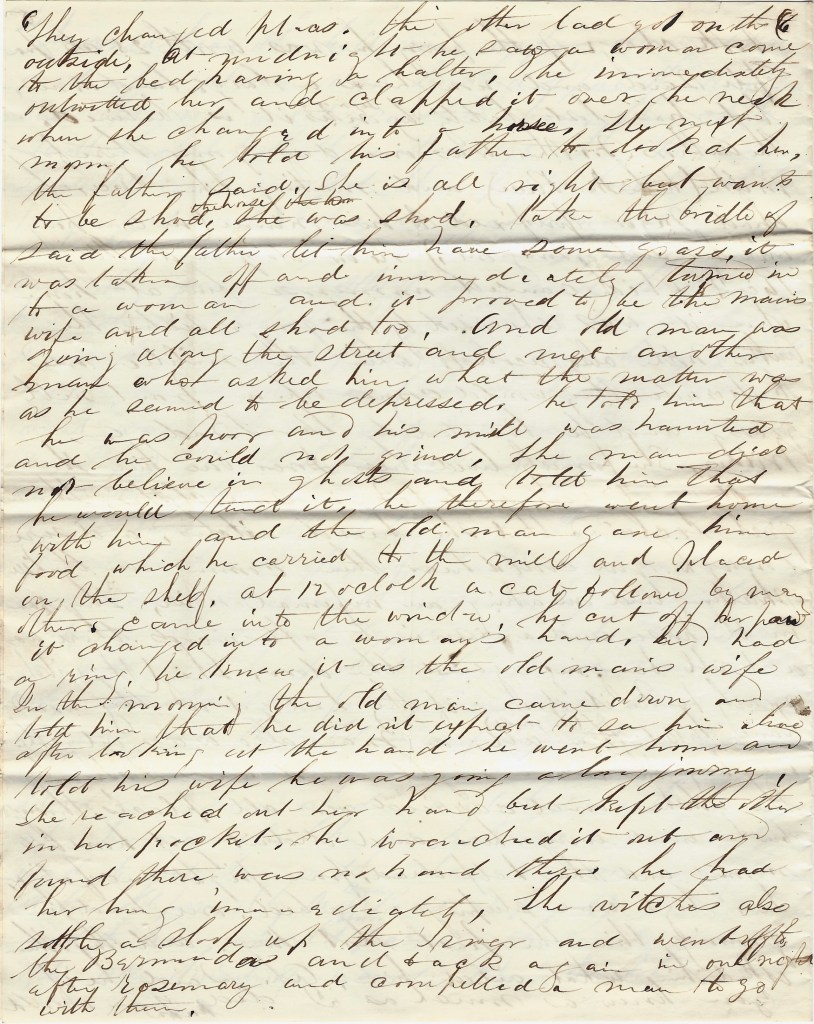 6 They changed plcas. the other lad got on the 6
outside, at midnight he saw a woman come
to the bed having a halter, he immediately
outwitted her and clapped it over he neck
when she changed into a horse. The next
morng he told his father to look at her,
the father said. She is all right but wants
to be shod, she was shod. Take the bridle of
said the father let him have some grass, it
was taken off and immediately turned in
to a woman and it proved to be the mans
wife and all shod too. And old man was
going along the street and met another
man who asked him what the matter was
as he seemed to be depressed. he told him that
he was poor and his mill was haunted
and he could not grind, The man died
not believe in ghosts and told him that
he would tend it, he therefore went home
with him and the old man gave him
food which he carried to the mill and placed
on the shelf, at 12 oclock a cat followed by many
others came into the window, he cut off her paw
it changed into a womans hand, and had
a ring, he knew it as the old mans wife
In the morning the old man came down and
told him that he did nt expect to se him alive
after looking at the hand he went home and
told his wife he was going a long jurney,
She reached out her hand but kept the other
in her pocket, he wrenched it out and
found there was no hand there he had
her hung immediately, The witches also
stole a sloop up the river and went off to
the Bermudas and back again in one night
after rosemary and compelled a man to go
with them.